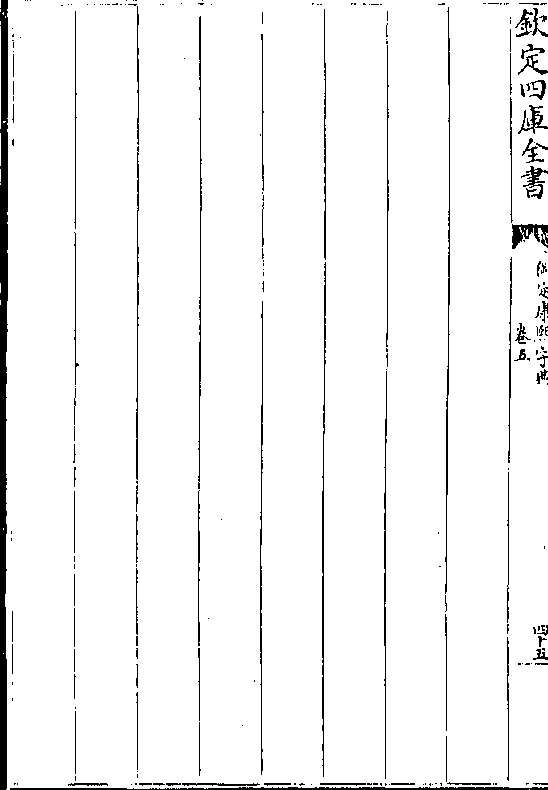 欽定四庫全書
御定康熙字典
卷五
四十五